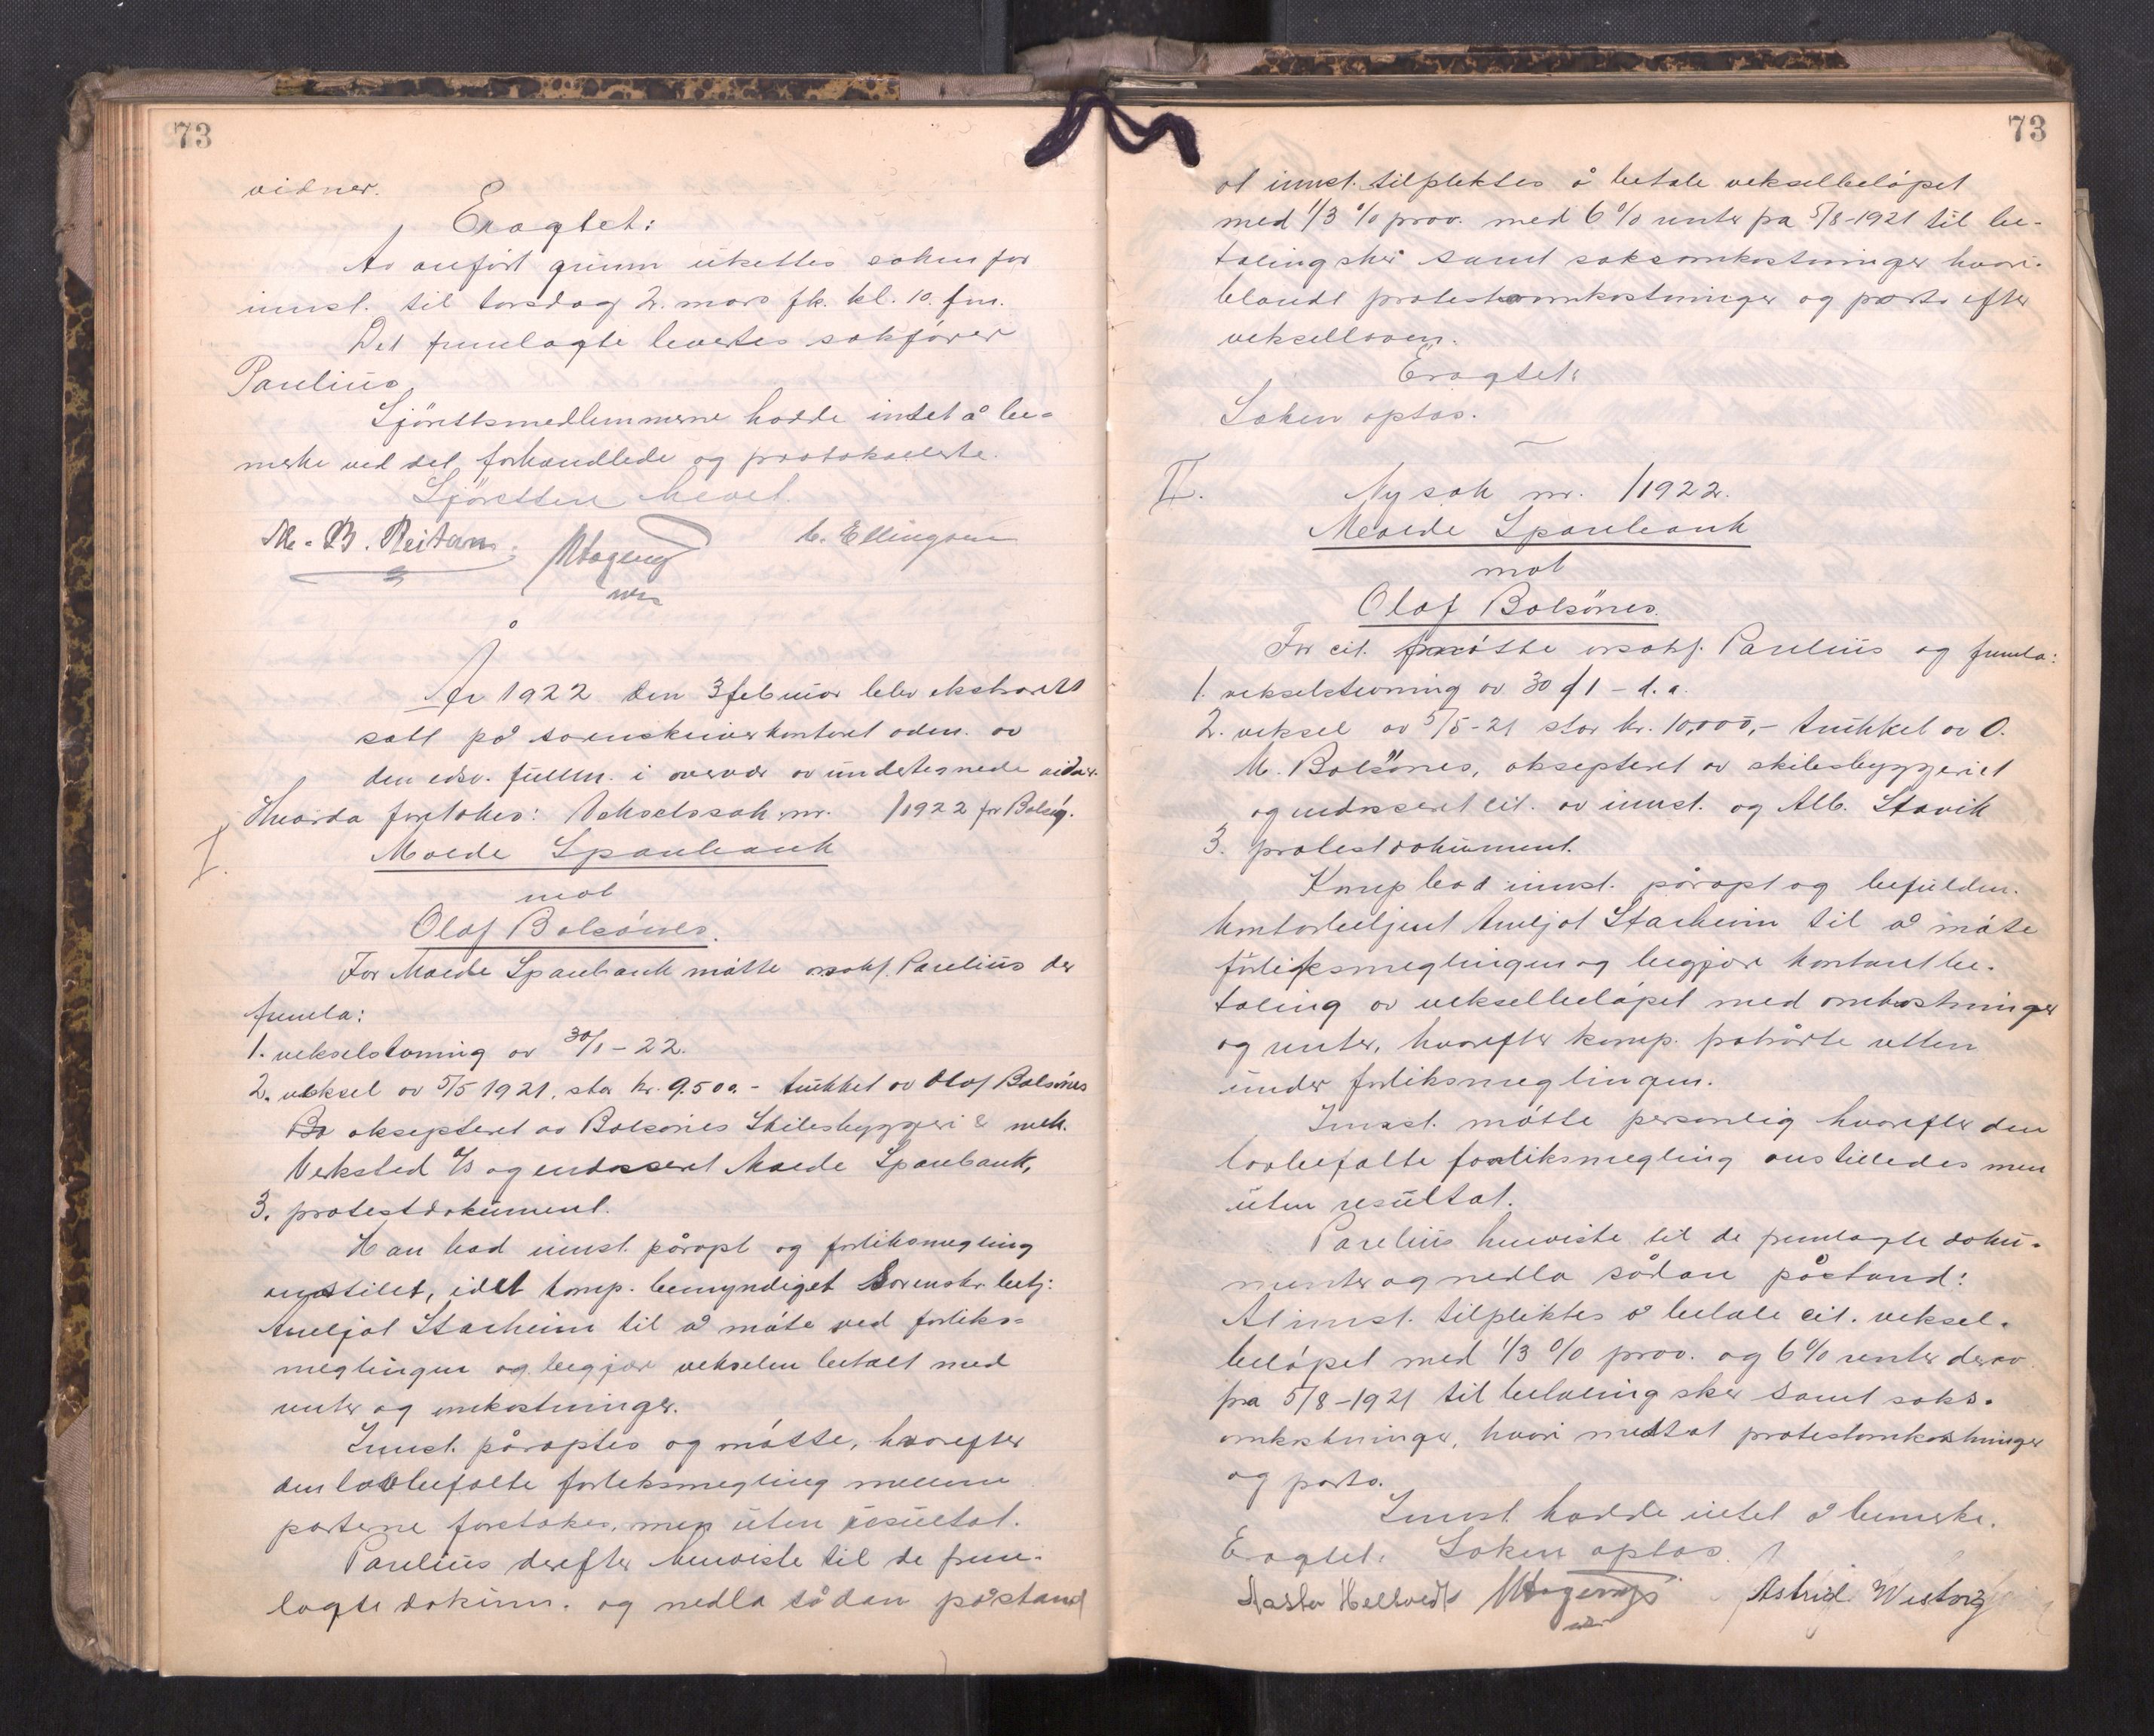 73
vidner.
Eragtet:
Av anført grunn utsettes saken for
innst. til torsdag 2. mars fk. kl. 10. fm.
Det fremlagte levertes sakfører
Parelius
Sjørettsmedlemmerne hadde intet å be-
merke ved det forhandlede og protokollerte.
Sjøretten hevet.
M. B. Reitan. C. Ellingsen
År 1922 den 3 februar blev ekstrarett
satt på sorenskriverkontoret adm. av
den edsv. fullm. i overvær av undertegnede vidner.
Hvorda foretokes: Vekselssak nr. /1922 for Bolsøy.
I.
Molde Sparebank
mot
Olaf Bolsönes.
For Molde Sparebank møtte orsakf. Parelius der
fremla:
1. vekselstevning av 30/1-22.
2. veksel av 5/5 1921, stor kr. 9.500.- trukket av Olaf Bolsönes
Bo akseptert av Bolsönes Skibsbyggeri & mek.
Verksted A/S og endosseret Molde Sparebank,
3. protestdokument.
Han bad innst. påropt og forliksmegling
anstillet, idet komp. bemyndiget Sorenskr. betj:
Arneljot Starheim til å møte ved forliks-
meglingen og begjære vekselen betalt med
renter og omkostninger.
Innst. påroptes og møtte, hvorefter
den lovbefalte forliksmegling mellem
parterne foretokes, men uten resultat.
Parelius derefter henviste til de frem-
lagte dokum. og nedla sådan påstand
73
at innst. tilpliktes å betale vekselbeløpet
med 1/3 % prov. med 6 % renter fra 5/8-1921 til be-
taling sker samt saksomkostninger hvori-
blandt protestomkostninger og porto efter
vekselloven.
Eragtet:
Saken optas.
II.
Ny sak nr. /1922.
Molde Sparebank
mot
Olaf Bolsönes.
For cit. møtte orsakf. Parelius og fremla:
1. vekselstevning av 30/1 - d. a.
2. veksel av 5/5-21 stor kr. 10,000,- trukket av O.
M. Bolsönes, akseptert av skibsbyggeriet
og endosseret cit. av innst. og Alb. Stavik
3. protestdokument.
Komp bad innst. påropt og befuldm.
kontorbetjent Arneljot Starheim til å møte
forliksmeglingen og begjære kontant be-
taling av vekselbeløpet med omkostninger
og renter, hvorefter komp. fratrådte retten
under forliksmeglingen.
Innst. møtte personlig hvorefter den
lovbefalte forliksmegling anstilledes men
uten resultat.
Parelius henviste til de fremlagte doku-
menter og nedla sådan påstand:
At innst. tilpliktes å betale cit. veksel-
beløpet med 1/3 % prov. og 6% renter derav
fra 5/8-1921 til betaling sker samt saks-
omkostninger, hvori medtat protestomkostninger
og porto.
Innst. hadde intet å bemerke.
Eragtet: Saken optas.
Helltvedt Astrid